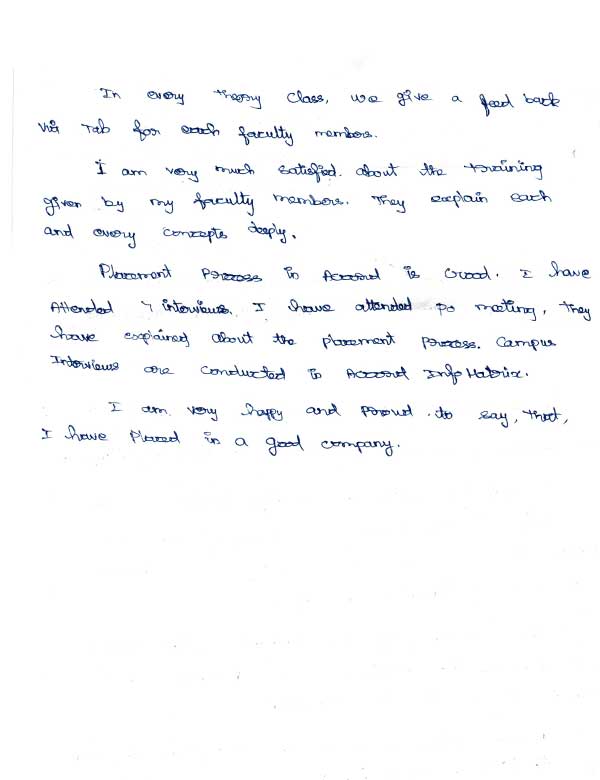 In every theory class, we give a feed back
via Tab for each faculty members.
I am very much satisfied. about the training
given by my faculty members. They explain each
and every concepts deeply.
Placement Process in Accord is Good. I have
Attended 7 interviews. I have attended PO meeting, they
have explained about the placement process. Campus
Interviews are conducted in Accord Info Matrix.
I am very happy and proud to say, that,
I have Placed in a good company.